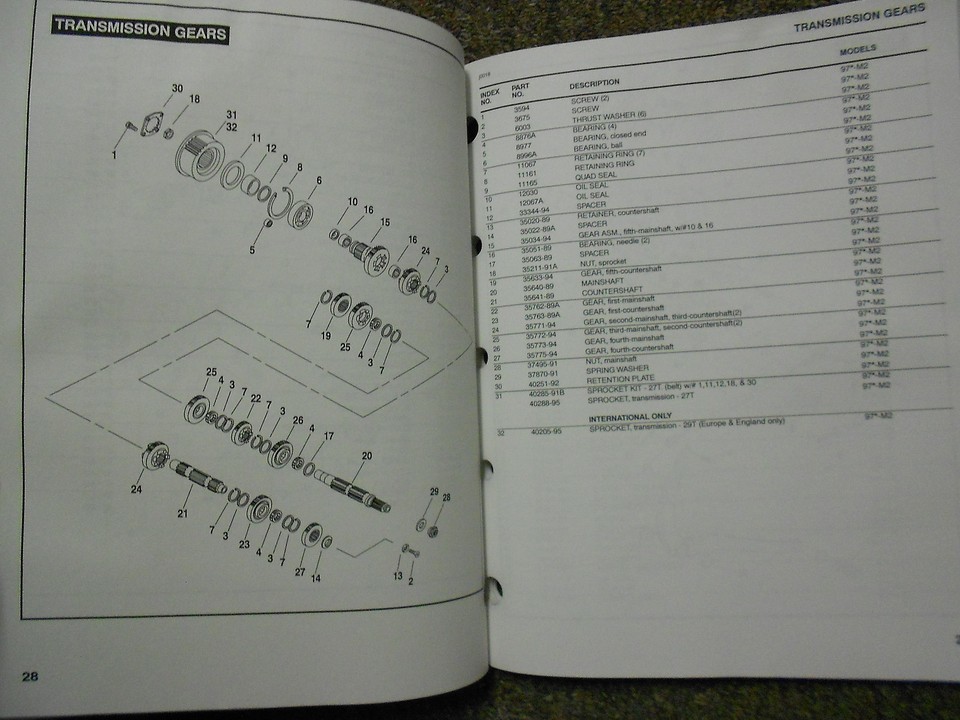 TRANSMISSION GEARS
30
18
31
32
11
12
9
8
6
1
5
10
16
15
16
24
7
3
7
19
25
4
3
7
25
4
3
7
22
7
3
26
4
17
20
24
21
7
3
23
4
3
7
27
14
29
28
13
2
28
TRANSMISSION GEARS
INDEX NO. PART NO. DESCRIPTION MODELS
1 3594 SCREW (2) 97*-M2
2 3675 SCREW 97*-M2
3 6003 THRUST WASHER (6) 97*-M2
4 8876A BEARING (4) 97*-M2
5 8977 BEARING, closed end 97*-M2
6 8996A BEARING, ball 97*-M2
7 11067 RETAINING RING (7) 97*-M2
8 11161 RETAINING RING 97*-M2
9 11165 QUAD SEAL 97*-M2
10 12030 OIL SEAL 97*-M2
11 12067A OIL SEAL 97*-M2
12 33344-94 SPACER 97*-M2
13 35020-89 RETAINER, countershaft 97*-M2
14 35022-89A SPACER 97*-M2
15 35034-94 GEAR ASM., fifth-mainshaft, w/#10 & 16 97*-M2
16 35051-89 BEARING, needle (2) 97*-M2
17 35063-89 SPACER 97*-M2
18 35211-91A NUT, sprocket 97*-M2
19 35633-94 GEAR, fifth-countershaft 97*-M2
20 35640-89 MAINSHAFT 97*-M2
21 35641-89 COUNTERSHAFT 97*-M2
22 35762-89A GEAR, first-mainshaft 97*-M2
23 35763-89A GEAR, first-countershaft 97*-M2
24 35771-94 GEAR, second-mainshaft, third-countershaft(2) 97*-M2
25 35772-94 GEAR, third-mainshaft, second-countershaft(2) 97*-M2
26 35773-94 GEAR, fourth-mainshaft 97*-M2
27 35775-94 GEAR, fourth-countershaft 97*-M2
28 37495-91 NUT, mainshaft 97*-M2
29 37870-91 SPRING WASHER 97*-M2
30 40251-92 RETENTION PLATE 97*-M2
31 40285-91B SPROCKET KIT - 27T (belt) w/# 1,11,12,18, & 30 97*-M2
40288-95 SPROCKET, transmission - 27T 97*-M2
INTERNATIONAL ONLY
32 40205-95 SPROCKET, transmission - 29T (Europe & England only) 97*-M2